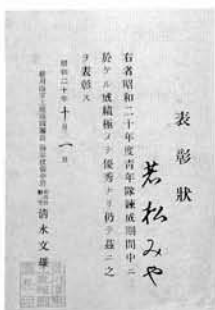 表彰狀
若松みや
右者昭和二十年度青年隊鍊成期間中ニ
於ケル成績極メテ優秀ナリ仍テ茲ニ之
ヲ表彰ス
昭和二十年十月一日
清水文雄